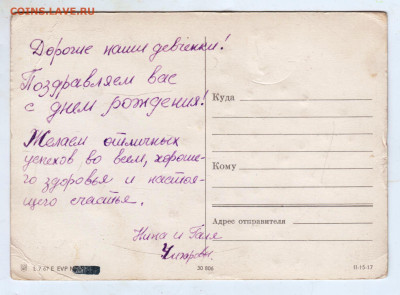 COINS.LAVE.RU
Дорогие наши девчёнки!
Поздравляем вас
с днем рождения!
Желаем отличных
успехов во всем, хороше-
го здоровья и настоя-
щего счастья.
Нина и Галя
Куда
Кому
Адрес отправителя
30 000
11-15-17